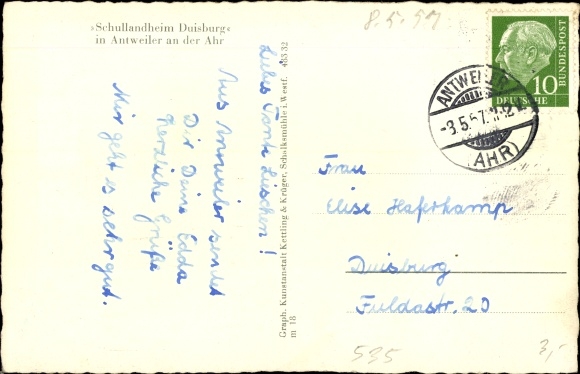 »Schullandheim Duisburg«
in Antweiler an der Ahr
8.5.57
Liebes Tante Lieschen!
Aus Annweiler sendet
Dir Deine Edda
herzliche Grüße
Mir geht es sehr gut.
Graph. Kunstanstalt Kettling & Krüger, Schalksmühle i. Westf. 483 32
m 18
DEUTSCHE BUNDESPOST
10
ANTWEILER
-3.5.57
(AHR)
Frau
Elise Haferkamp
Duisburg
Fuldastr. 20
535
3,-